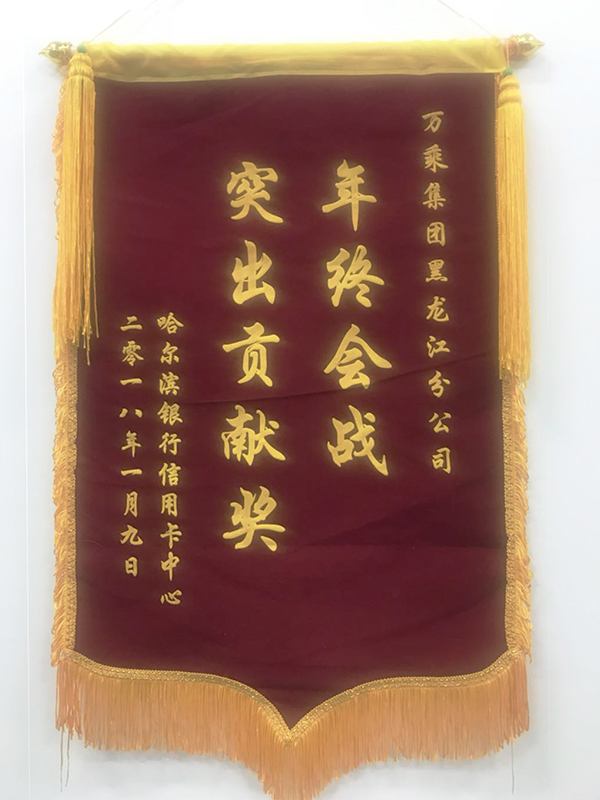 万乘集团黑龙江分公司
年终会战
突出贡献奖
哈尔滨银行信用卡中心
二零一八年一月九日